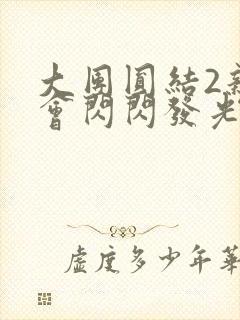 大團圓結2亲
會閃閃發光
虛度多少年華